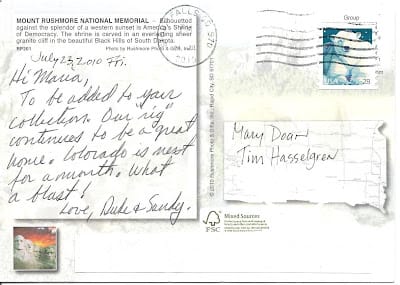 MOUNT RUSHMORE NATIONAL MEMORIAL - Silhouetted
against the splendor of a western sunset is America's Shrine
of Democracy. The shrine is carved in an everlasting sheer
granite cliff in the beautiful Black Hills of South Dakota.
RP301 Photo by Rushmore Photo & Gifts, Inc.
July 23, 2010 Fri.
Hi Maria,
To be added to your
collection. Our "rig"
continues to be a great
home. Colorado is next
for a month. What
a blast!
Love, Duke & Sandy.
FALLS SD 570
2010
© 2010 Rushmore Photo & Gifts, Inc., Rapid City, SD 57701
Group
USA 28
Mary Doan
Tim Hasselgren
FSC
Mixed Sources